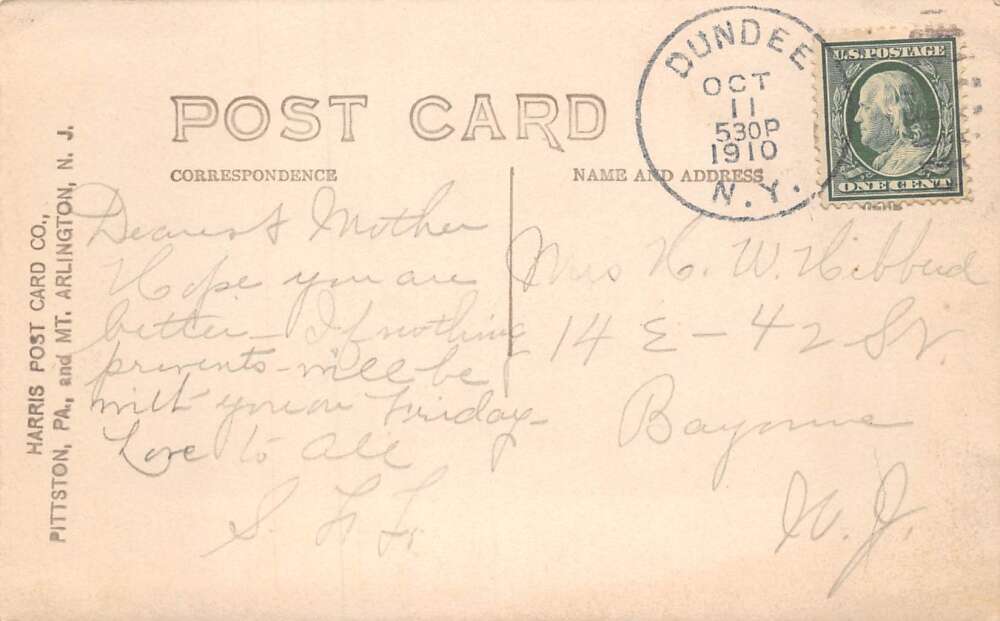 POST CARD
CORRESPONDENCE
NAME AND ADDRESS
HARRIS POST CARD CO.,
PITTSTON, PA., and MT. ARLINGTON, N. J.
DUNDEE
OCT
11
530P
1910
N.Y.
U.S. POSTAGE
ONE CENT
Dearest Mother
Hope you are
better - If nothing
prevents - will be
with you on Friday -
Love to all
Mrs H. W. Hibberd
14 E - 42 St.
Bayonne
N. J.